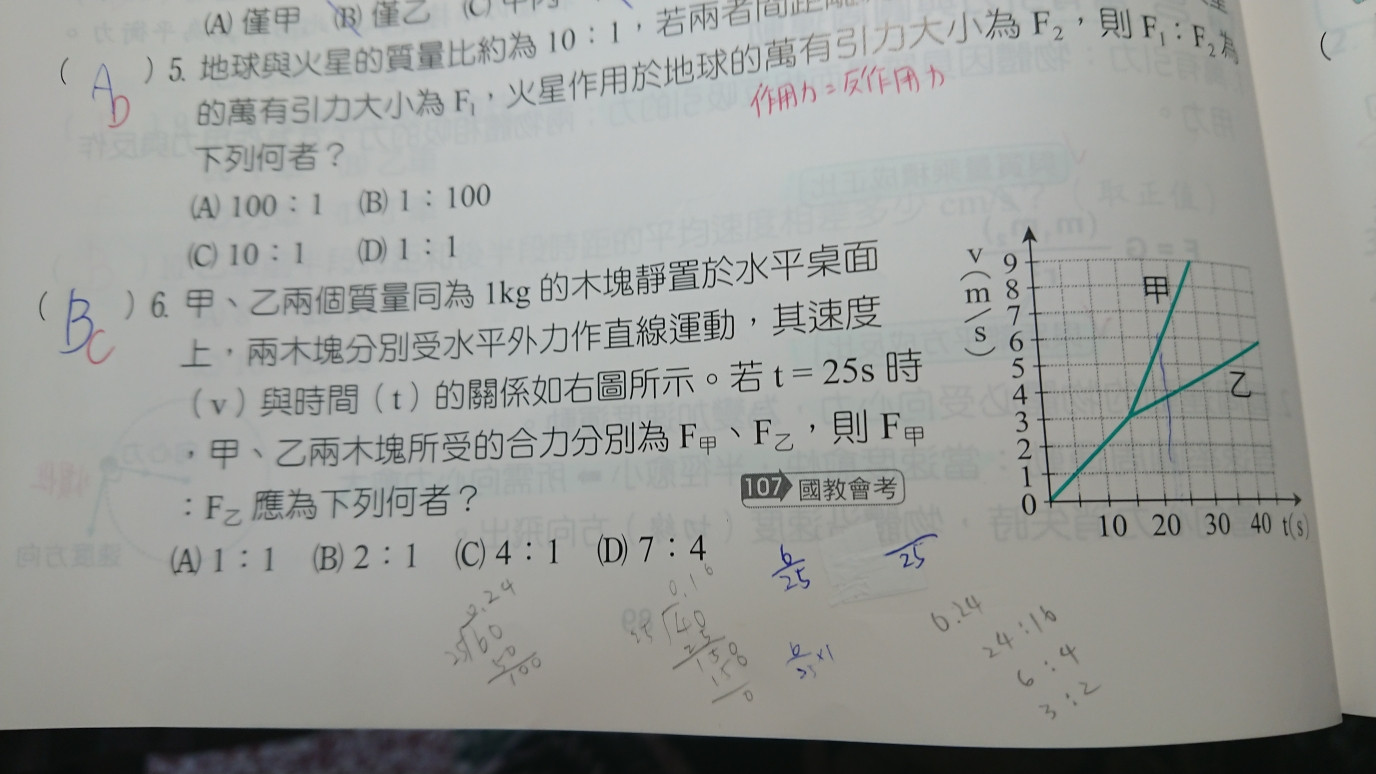 (A) 僅甲 (B) 僅乙 (C)
( A D ) 5. 地球與火星的質量比約為 10:1,若兩者間距離
的萬有引力大小為 F₁,火星作用於地球的萬有引力大小為 F₂,則 F₁:F₂為
作用力=反作用力
下列何者?
(A) 100:1 (B) 1:100
(C) 10:1 (D) 1:1
( B C ) 6. 甲、乙兩個質量同為 1kg 的木塊靜置於水平桌面
上,兩木塊分別受水平外力作直線運動,其速度
(v)與時間(t)的關係如右圖所示。若 t = 25s 時
,甲、乙兩木塊所受的合力分別為 F甲、F乙,則 F甲
:F乙 應為下列何者?
107 國教會考
(A) 1:1 (B) 2:1 (C) 4:1 (D) 7:4
v(m/s)
9
8
7
6
5
4
3
2
1
0
甲
乙
10 20 30 40 t(s)
6/25
25
0.24
25 60
50
100
0.16
25 40
25
150
150
0
6/25 ×1
0.24
24:16
6:4
3:2